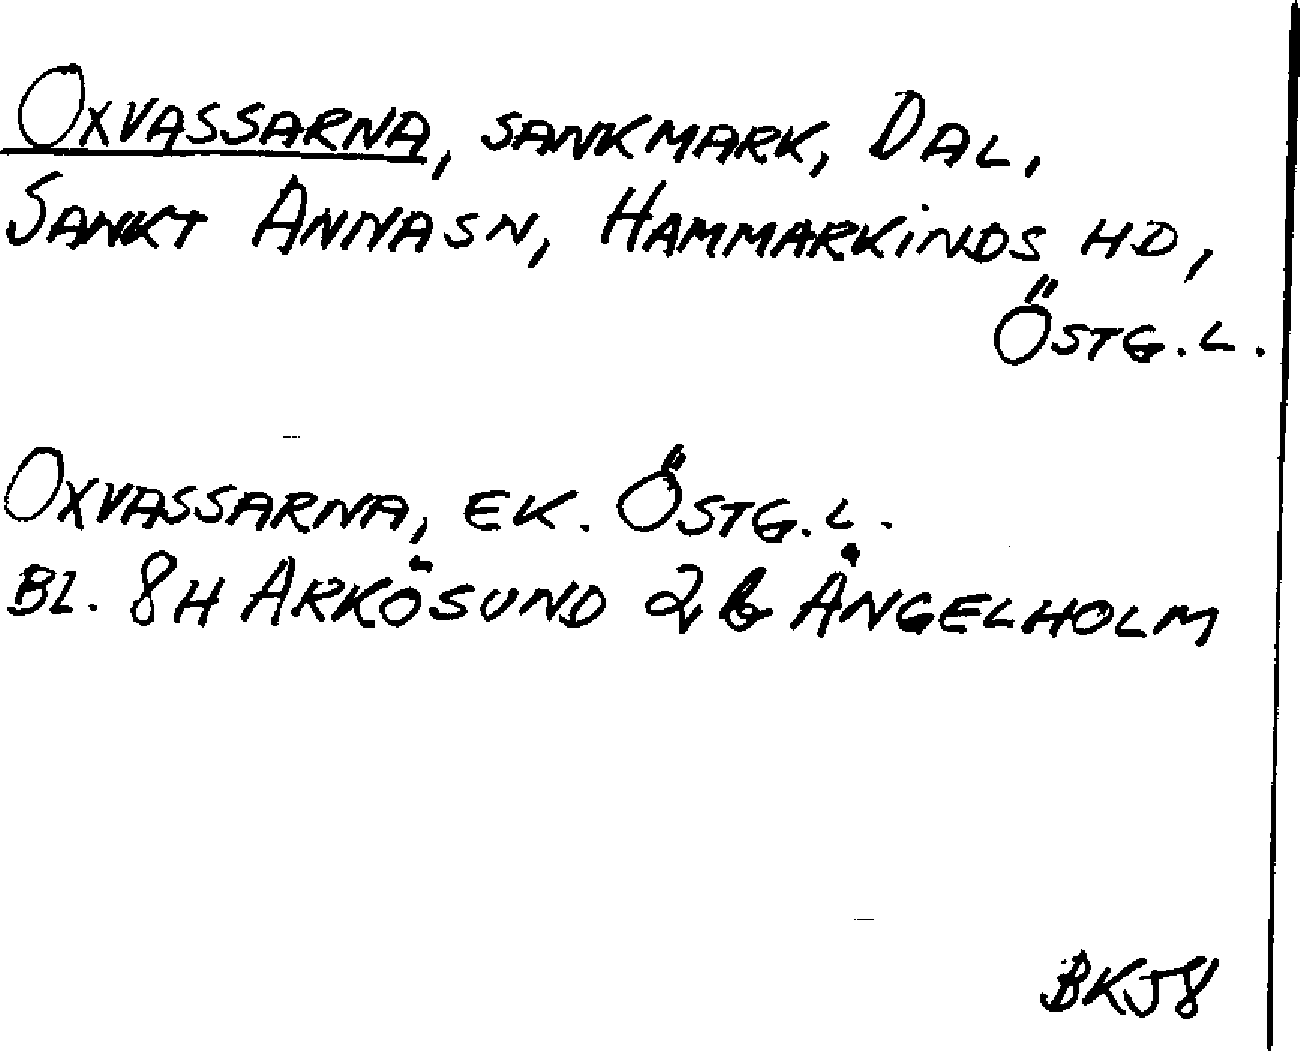 OXVASSARNA, SANKMARK, DAL,
SANKT ANNA SN, HAMMARKINDS HD,
ÖSTG.L.
OXVASSARNA, EK. ÖSTG.L.
BL. 8H ARKÖSUND 2b ÄNGELHOLM
BK58